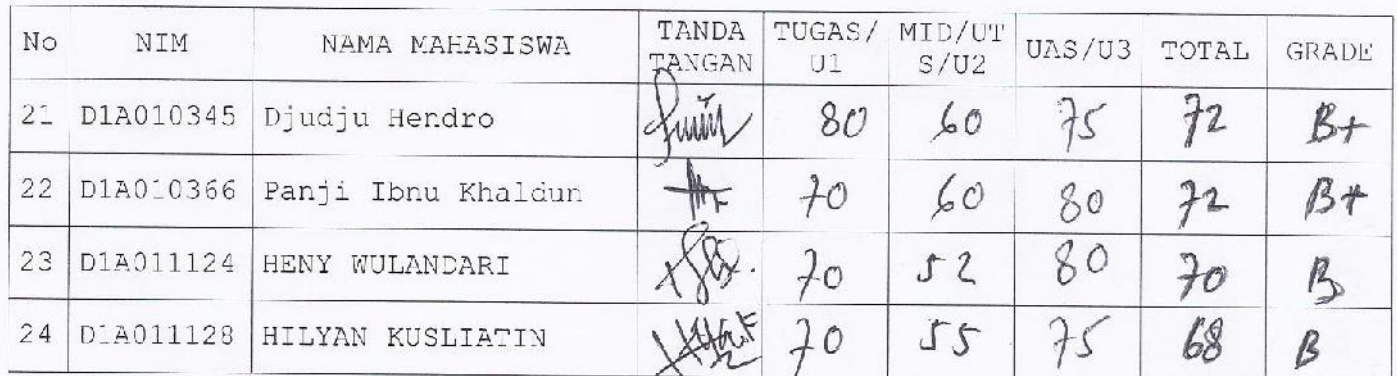 No NIM NAMA MAHASISWA TANDA TANGAN TUGAS/U1 MID/UTS/U2 UAS/U3 TOTAL GRADE
21 D1A010345 Djudju Hendro 80 60 75 72 B+
22 D1A010366 Panji Ibnu Khaldun 70 60 80 72 B+
23 D1A011124 HENY WULANDARI 70 52 80 70 B
24 D1A011128 HILYAN KUSLIATIN 70 55 75 68 B